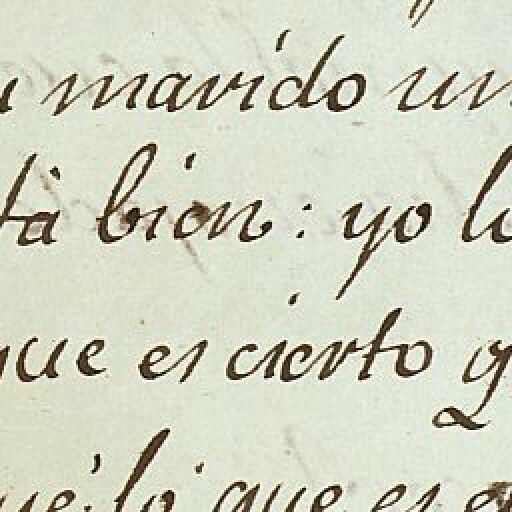 marido un
tà bien: yo lo
que es cierto q
lo que es